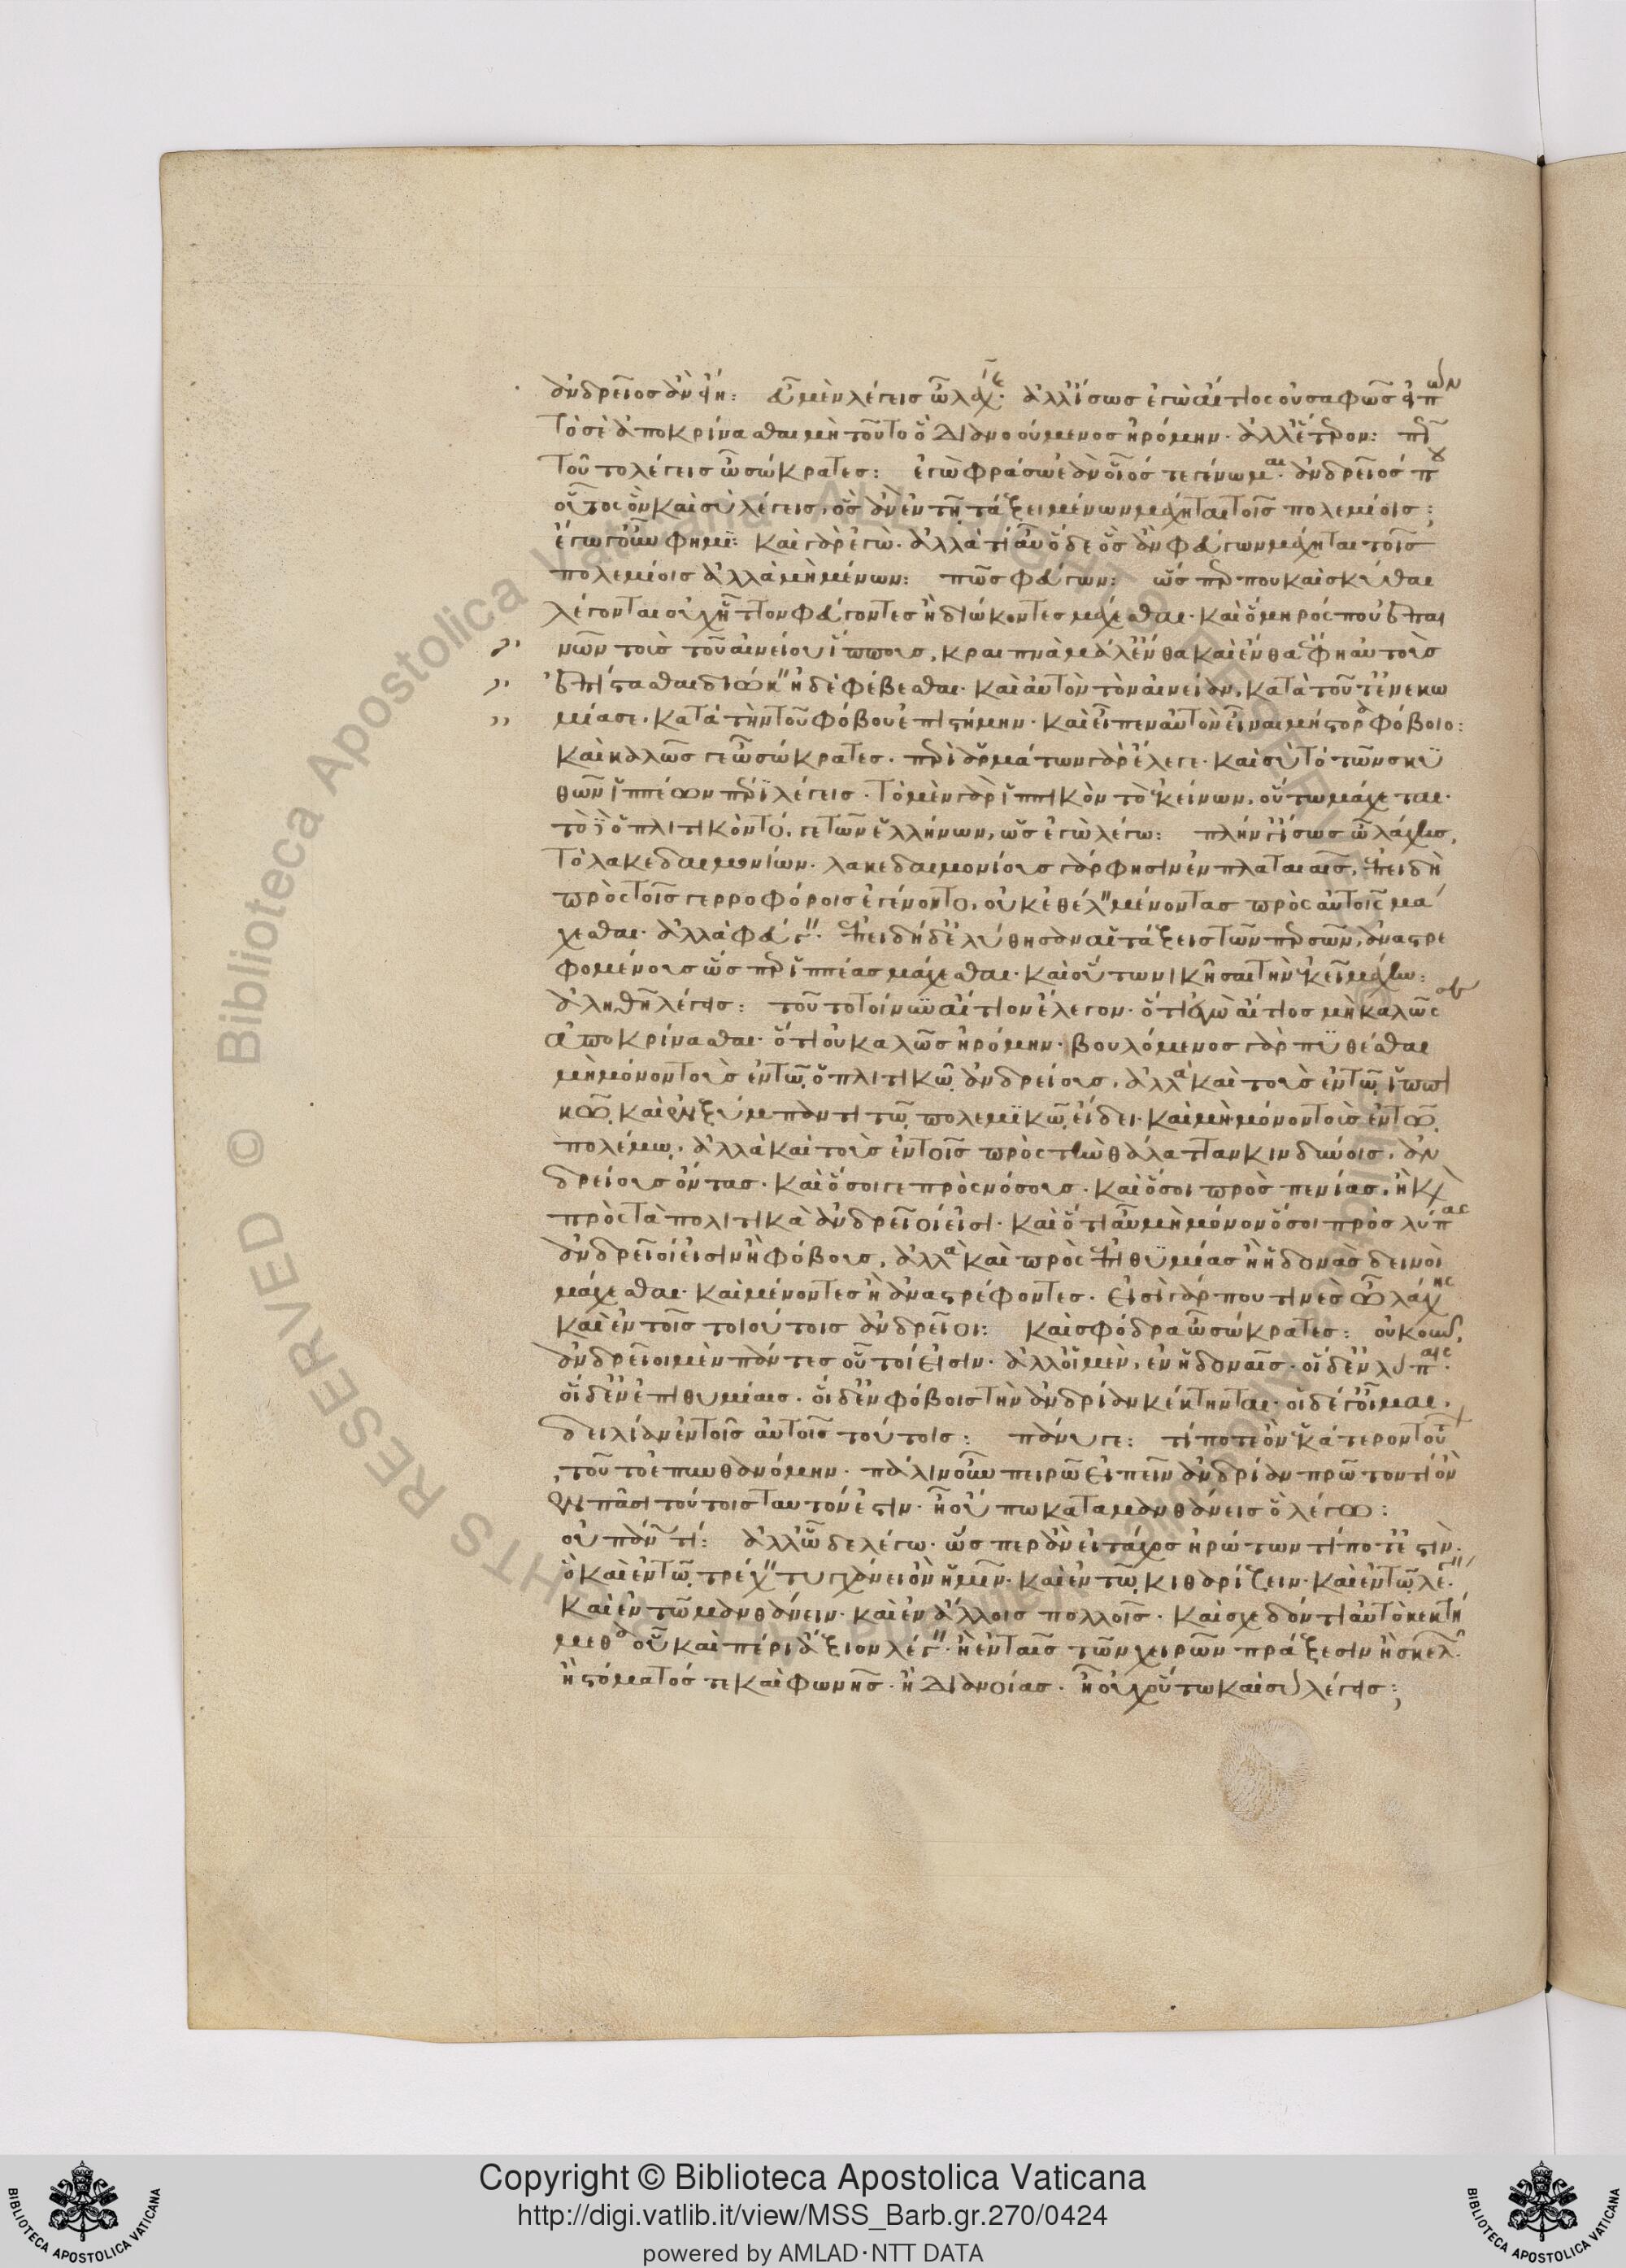 ἀνδρεῖος ἂν εἴη: εὖ μὲν λέγεις ὦ λάχης· ἀλλ' ἴσως ἐγὼ αἴτιος οὐ σαφῶς εἰπὼν
τὸ σὲ ἀποκρίνασθαι μὴ τοῦτο ὃ διανοούμενος ἠρόμην· ἀλλ' ἕτερον: πῶς
τοῦτο λέγεις ὦ σώκρατες: ἐγὼ φράσω ἐὰν οἷός τε γένωμαι· ἀνδρεῖός που
οὗτος ὃν καὶ σὺ λέγεις, ὃς ἂν ἐν τῇ τάξει μένων μάχηται τοῖς πολεμίοις;
ἐγὼ γοῦν φημί: καὶ γὰρ ἐγώ· ἀλλὰ τί αὖ ὅδε ὃς ἂν φεύγων μάχηται τοῖς
πολεμίοις ἀλλὰ μὴ μένων: πῶς φεύγων: ὥσπερ που καὶ σκύθαι
λέγονται οὐχ ἧττον φεύγοντες ἢ διώκοντες μάχεσθαι· καὶ ὅμηρός που ἐπαι
νῶν τοὺς τοῦ αἰνείου ἵππους, κραιπνὰ μάλ' ἔνθα καὶ ἔνθα ἔφη αὐτοὺς
ἐπίστασθαι διώκειν ἠδὲ φέβεσθαι· καὶ αὐτὸν τὸν αἰνείαν, κατὰ τοῦτ' ἐνεκω
μίασε, κατὰ τὴν τοῦ φόβου ἐπιστήμην· καὶ εἶπεν αὐτὸν εἶναι μήστορα φόβοιο:
καὶ καλῶς γε ὦ σώκρατες· περὶ ἁρμάτων γὰρ ἔλεγε· καὶ σὺ τὸ τῶν σκυ
θῶν ἱππέων πέρι λέγεις· τὸ μὲν γὰρ ἱππικὸν τὸ ἐκείνων, οὕτω μάχεται·
τὸ δὲ ὁπλιτικὸν τό, γε τῶν ἑλλήνων, ὡς ἐγὼ λέγω: πλήν γ' ἴσως ὦ λάχης,
τὸ λακεδαιμονίων· λακεδαιμονίους γάρ φησιν ἐν πλαταιαῖς, ἐπειδὴ
πρὸς τοῖς γερροφόροις ἐγένοντο, οὐκ ἐθέλειν μένοντας πρὸς αὐτοῖς μά
χεσθαι· ἀλλὰ φεύγειν· ἐπειδὴ δ' ἐλύθησαν αἱ τάξεις τῶν περσῶν, ἀναστρε
φομένους ὥσπερ ἱππέας μάχεσθαι· καὶ οὕτω νικῆσαι τὴν ἐκεῖ μάχην:
ἀληθῆ λέγεις: τοῦτο τοίνυν αἴτιον ἔλεγον· ὅτι ἐγὼ αἴτιος μὴ καλῶς σε
ἀποκρίνασθαι· ὅτι οὐ καλῶς ἠρόμην· βουλόμενος γὰρ πυθέσθαι
μὴ μόνον τοὺς ἐν τῷ ὁπλιτικῷ ἀνδρείους, ἀλλὰ καὶ τοὺς ἐν τῷ ἱππι
κῷ, καὶ ἐν ξύμπαντι τῷ πολεμικῷ εἴδει· καὶ μὴ μόνον τοὺς ἐν τῷ
πολέμῳ, ἀλλὰ καὶ τοὺς ἐν τοῖς πρὸς τὴν θάλατταν κινδύνοις, ἀν
δρείους ὄντας· καὶ ὅσοι γε πρὸς νόσους· καὶ ὅσοι πρὸς πενίας, ἢ καὶ
πρὸς τὰ πολιτικὰ ἀνδρεῖοί εἰσι· καὶ ὅτι αὖ μὴ μόνον ὅσοι πρὸς λύπας
ἀνδρεῖοί εἰσιν ἢ φόβους, ἀλλὰ καὶ πρὸς ἐπιθυμίας ἢ ἡδονὰς δεινοὶ
μάχεσθαι· καὶ μένοντες ἢ ἀναστρέφοντες· εἰσὶ γάρ που τινὲς ὦ λάχης
καὶ ἐν τοῖς τοιούτοις ἀνδρεῖοι: καὶ σφόδρα ὦ σώκρατες: οὐκοῦν,
ἀνδρεῖοι μὲν πάντες οὗτοί εἰσιν· ἀλλ' οἱ μὲν, ἐν ἡδοναῖς· οἱ δ' ἐν λύπαις·
οἱ δ' ἐν ἐπιθυμίαις· οἱ δ' ἐν φόβοις τὴν ἀνδρίαν κέκτηνται· οἱ δέ γ' οἶμαι,
δειλίαν ἐν τοῖς αὐτοῖς τούτοις: πάνυ γε: τί ποτε ὂν ἑκάτερον τού
των τοῦτο ἐπυνθανόμην· πάλιν οὖν πειρῶ εἰπεῖν ἀνδρίαν πρῶτον τί ὂν
ἐν πᾶσι τούτοις ταυτόν ἐστιν· ἢ οὔπω καταμανθάνεις ὃ λέγω:
οὐ πάνυ τι: ἀλλ' ὧδε λέγω· ὥσπερ ἂν εἰ τάχος ἠρώτων τί ποτ' ἐστὶν·
ὃ καὶ ἐν τῷ τρέχειν τυγχάνει ὂν ἡμῖν· καὶ ἐν τῷ κιθαρίζειν· καὶ ἐν τῷ λέγειν,
καὶ ἐν τῷ μανθάνειν· καὶ ἐν ἄλλοις πολλοῖς· καὶ σχεδόν τι αὐτὸ κεκτή
μεθα οὗ καὶ πέρι ἄξιον λέγειν· ἢ ἐν ταῖς τῶν χειρῶν πράξεσιν ἢ σκελῶν·
ἢ στόματός τε καὶ φωνῆς· ἢ διανοίας· ἢ οὐχ οὕτω καὶ σὺ λέγεις;
Copyright © Biblioteca Apostolica Vaticana
http://digi.vatlib.it/view/MSS_Barb.gr.270/0424
powered by AMLAD·NTT DATA